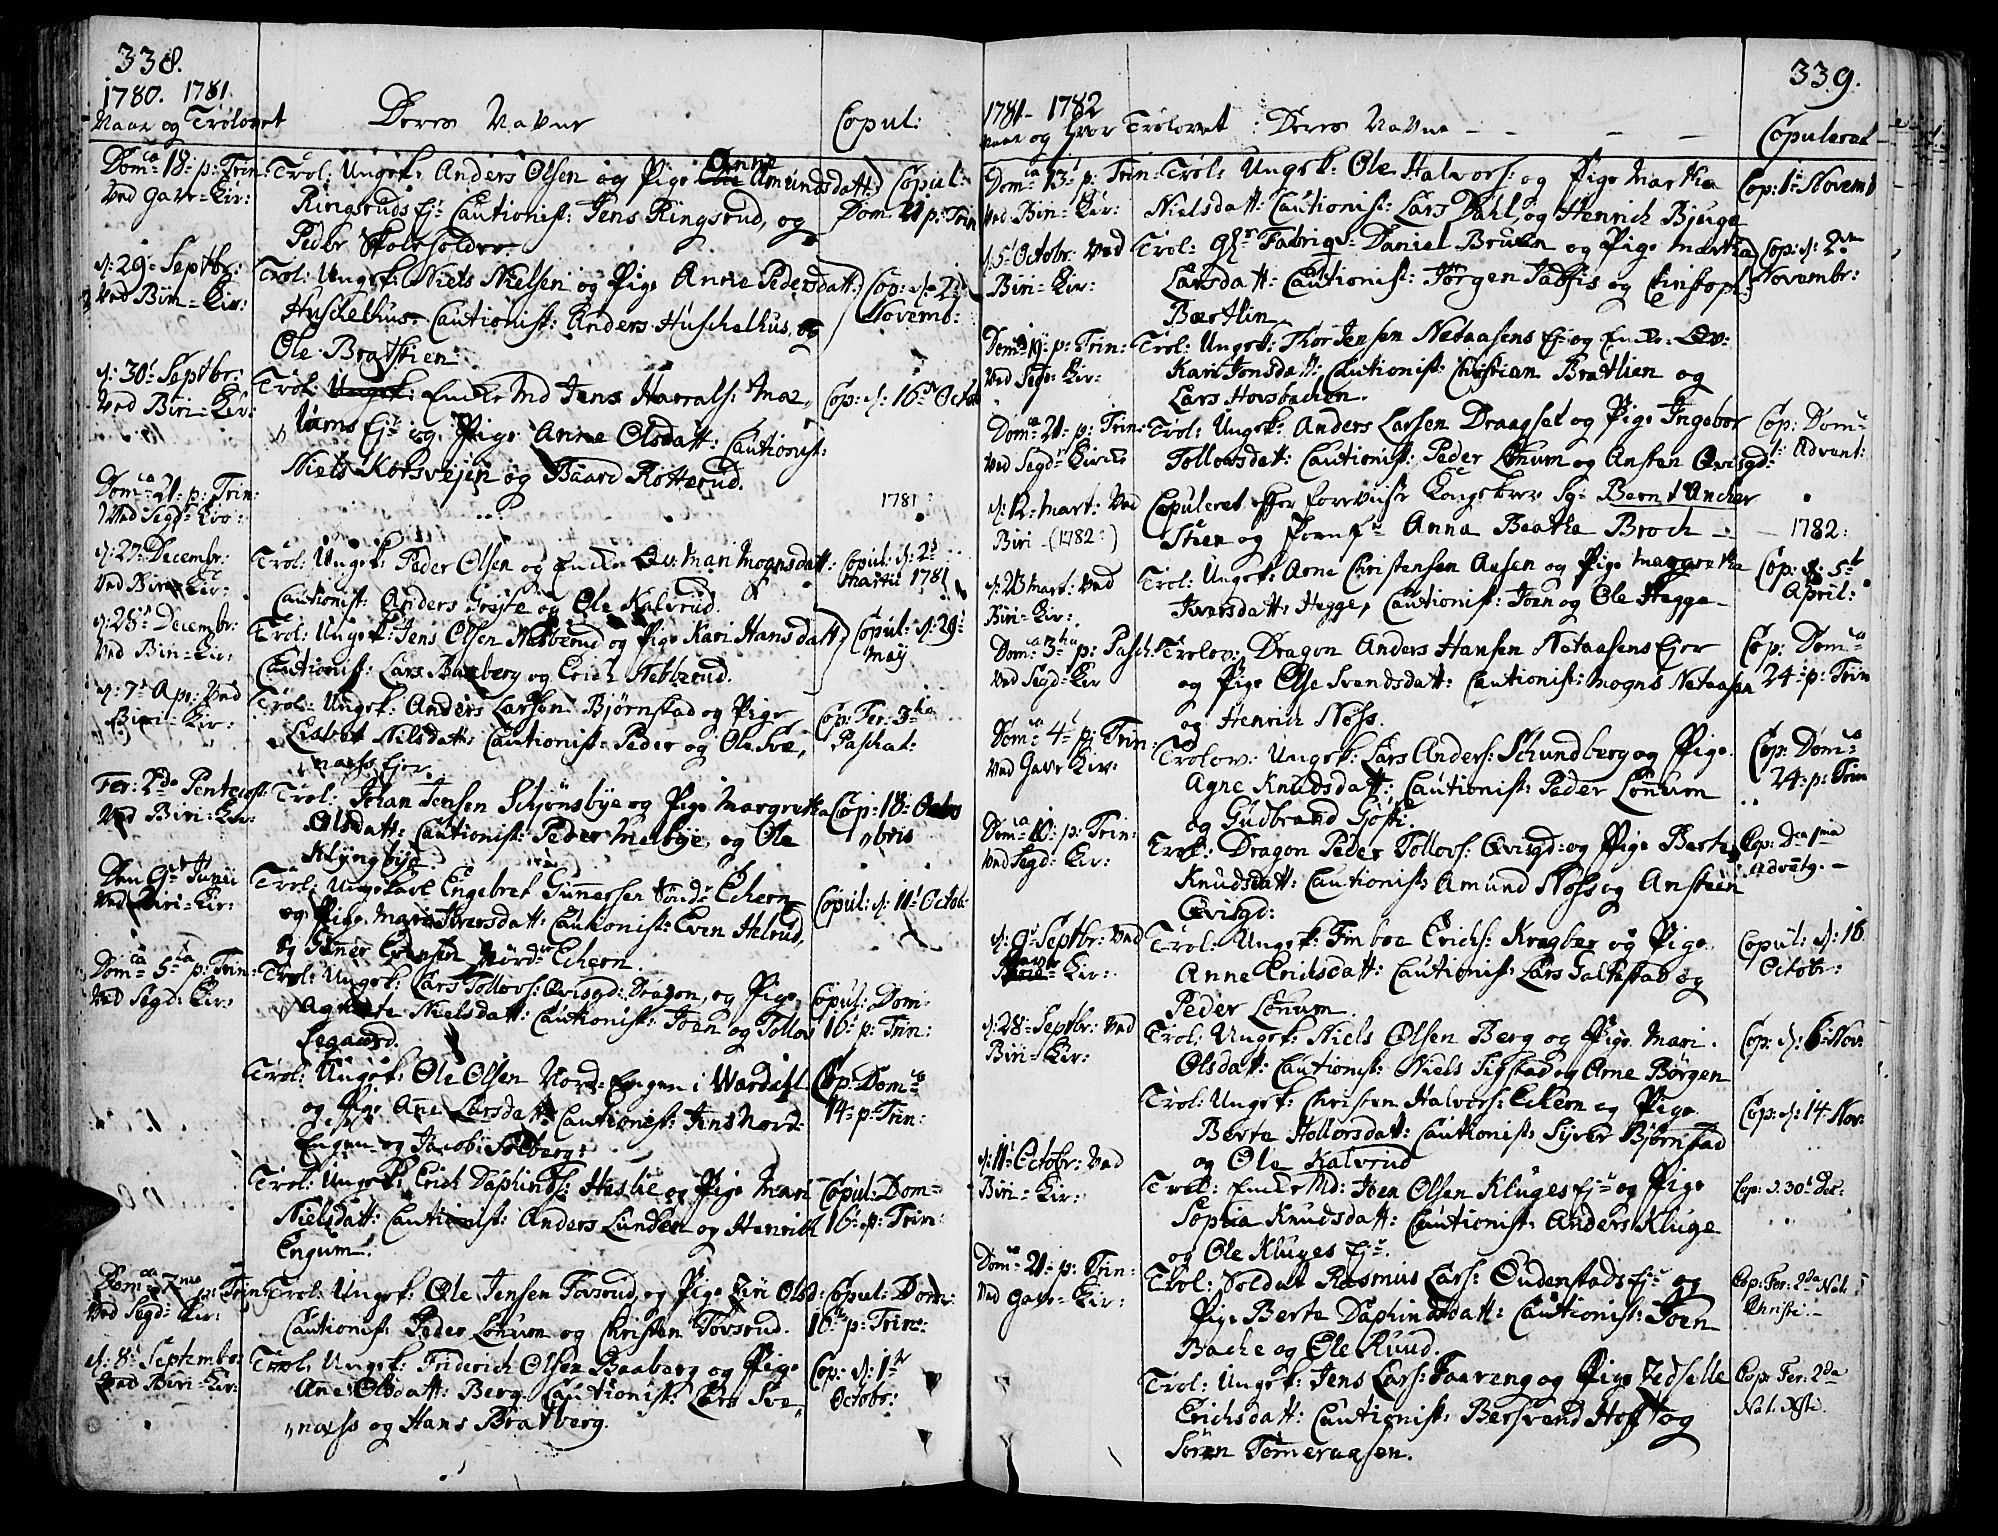 338.
1780. 1781.
Naar og Trolovet
Deres Navne
Copul:
Domca 18. p: Trin:
Ved Gave-Kir:
Trol: Ungek: Anders Olsen og Pige Anne Amundsdatt:
Ringsruds Ej: Cautionist: Jens Ringsrud, og
Peder Skoleholder.
Copul:
Dom: 21 p: Trin
d: 29. Septbr:
Ved Biri-Kir:
Trol: Ungek: Niels Nielsen og Pige Anne Pedersdatt:
Huschelhus. Cautionist: Anders Huschelhus, og
Ole Bratlien.
Cop: d. 2d
Novemb:
d: 30t Septbr:
Ved Biri-Kir:
Trol: Ungek: Enke Md Jens Haralds:
Ejr og Pige Anne Olsdatt: Cautionist:
Niels Korsvejen og Baard Rotterud.
Cop: d: 16de Octob
Domca 21. p: Trin:
Ved Segd: Kir:
1781:
d: 27. Decembr:
Ved Biri-Kir:
Trol: Ungek: Peder Olsen og Enke Qv: Mari Mognsdatt:
Cautionist: Anders og Ole Kalvrud.
Copul: d: 2d
Martii 1781
d: 28. Decembr:
Ved Biri-Kir:
Trol: Ungek: Jens Olsen Nebberud og Pige Kari Hansdatt:
Cautionist: Lars Baaberg og Erich Nebberud.
Copul: d: 29.
Maij
d: 7. Ap: Ved
Biri-Kir:
Trol: Ungek: Anders Larsen Bjørnstad og Pige
Lisbet Nilsdatt: Cautionist: Peder og Ole Sve,
næss Ejer.
Cop: Fer: 3tia
Paschat:
Fer: 2da Pentecost:
Ved Biri-Kir:
Trol: Johan Jensen Schjønsbye og Pige Margretha
Olsdatt: Cautionist: Peder Melbye, og Ole
Klyngbye.
Cop: 18. Octo
bris
Den 9de Junii
Ved Biri-Kir:
Trol: Ungekarl Engebret Gunersen Sønd: Echern
og Pige Mari Iversdatt: Cautionist: Even Helrud,
og Guner Evensen Nørdr Echern.
Copul: d: 11t Octob:
Domca 5ta p: Trin:
Ved Segd: Kir:
Trol: Ungek: Lars Tollovs: Qvisgd: Dragon, og Pige
Agnete Nielsdatt: Cautionist: Joen og Tollov
Segaard.
Copul: Dom:
16. p: Trin:
Trol: Ungek: Ole Olsen Nord-Engen i Wardall
og Pige Ane Larsdatt: Cautionist: Jens Nord-
Engen og Jacob Solberg:
Cop: Domca
14. p: Trin:
Trol: Ungek: Erich Daphinds: Haslie og Pige Mari
Nielsdatt: Cautionist: Anders Lunden og Henrich
Engum.
Copul: Dom:
16. p: Trin:
Domca 7ma p: Trin:
Ved Segd: Kir:
Trol: Ungek: Ole Jensen Tovsrud og Pige Ziri Olsd:
Cautionist: Peder Lønum og Christen Tovsrud.
Copul: Dom:
16. p: Trin:
d: 8t Septembr:
Ved Biri-Kir:
Trol: Ungek: Friderich Olsen Baaberg og Pige
Ane Olsdatt: Berg. Cautionist: Lars Sve,
næss og Hans Bratberg.
Cop: d: 1ste
Octobr:
339.
1781-1782
Naar og hvor Trolovet: Deres Navne
Copuleret
Domca 13. p: Trin:
Ved Biri-Kir:
Trol: Ungek: Ole Halvors: og Pige Martha
Nielsdatt: Cautionist: Lars Dahl og Henrich Bjuge
Cop: 1t Novemb
d: 5t Octobr: Ved
Biri-Kir:
Trol: Fabriqr Daniel Bruun og Pige Martha
Larsdatt: Cautionist: Jørgen og Christoph:
Bertlin.
Cop: d. 2den
Novembr:
Domca 19. p: Trin:
Ved Segd-Kir:
Trol: Ungek: Thor Jensen Nætaasens Ej: og Enke-Qv:
Kari Jonsdatt: Cautionist: Christian Bratlien og
Lars Hovsbachen.
Domca 21. p: Trin:
Ved Segd: Kirke
Trol: Ungek: Anders Larsen Draagset og Pige Ingebor
Tollovsdatt: Cautionist: Peder Lønum og Ansten Qvisgd:
Cop: Dom
1t Advent:
d: 12. Mart: Ved
Biri (1782:)
Copuleret efter foreviiste Kongebrev Sg: Bernt Ancher
Steen og Jomfr Anna Beatha Broch
1782:
d: 23 Mart: Ved
Biri-Kir:
Trol: Ungek: Arne Christensen Aasen og Pige Margretha
Iversdatt: Hegge, Cautionist: Joen og Ole Hegge
Cop: d: 5t
April:
Domca 3tia p: Pasch:
Ved Segd: Kir
Trolov: Dragon Anders Hansen Nætaasens Ejer
og Pige Else Svendsdatt: Cautionist: Mogns Nætaasen
og Henrich Næss.
Cop: Domca
24. p: Trin
Domca 4. p: Trin:
Ved Gave Kir:
Trolov: Ungek: Lars Anders: Schundberg og Pige
Agne Knudsdatt: Cautionist: Peder Lønum
og Gudbrand Gøsti.
Cop: Domca
24. p: Trin
Domca 10. p: Trin:
Ved Segd: Kir:
Trol: Dragon Peder Tollovs: Qvisgd: og Pige Berte
Knudsdatt: Cautionist: Amund Næss og Ansteen
Qvisgd:
Cop: Dca 1ma
Advent.
d: 9t Septbr: Ved
Gave-Kir:
Trol: Ungek: Timboe Erichs: Kragber og Pige
Anne Erichsdatt: Cautionist: Lars Saltestad og
Peder Lønum.
Copul: d: 18
Octobr:
d: 28. Septbr: Ved
Biri-Kir:
Trol: Ungek: Niels Olsen Berg og Pige Mari
Olsdatt: Cautionist: Niels Sigstad og Arne Børgen
Cop: d: 6. Nov:
Trol: Ungek: Christen Halvors: Echern og Pige
Berte Hollorsdatt: Cautionist: Syver Bjørnstad
og Ole Kalvrud
Cop: d: 14. Nov:
d: 11t Octobr: Ved
Biri-Kir:
Trol: Enke Md: Joen Olsen Kluges Ejr og Pige
Sophia Knudsdatt: Cautionist: Anders Kluge
og Ole Kluges Ejr.
Cop: d. 30t Dec:
Domca 21. p: Trin:
Ved Gave-Kir:
Trol: Soldat Rasmus Lars: Oudenstads Ejr og
Pige Berte Daphindsdatt: Cautionist: Joen
Bache og Ole Ruud.
Cop: Fer: 2da Nat:
Christi.
Trol: Ungek: Jens Lars: Faareng og Pige Zidselle
Erichsdatt: Cautionist: Bersvend Hoff og
Søren Tømeraasen.
Cop: Fer: 2da
Nat. Xsti.